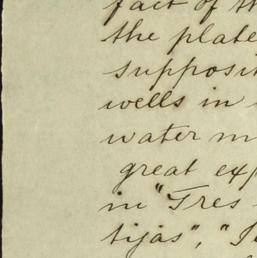 fact of th
the plate
supposit
wells in
water m
great exp
in "Tres
tijas", "I